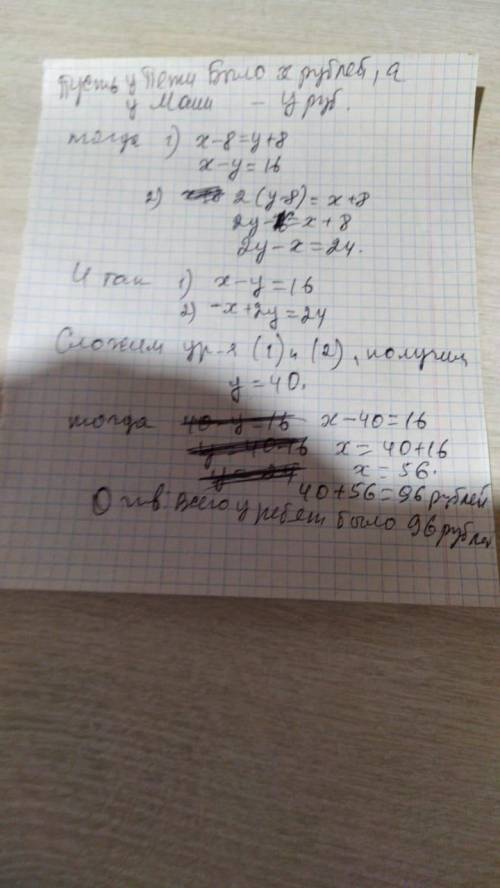 Пусть у Пети было x рублей, а
у Маши - y руб.
тогда 1) x-8=y+8
x-y=16
2) 2(y-8)=x+8
2y-16=x+8
2y-x=24.
И так 1) x-y=16
2) -x+2y=24
Сложим ур-я (1) и (2), получим
y=40.
тогда 40-y=16 x-40=16
y=40-16 x=40+16
y=24 x=56.
40+56=96 рублей
Отв: Всего у ребят было 96 рублей